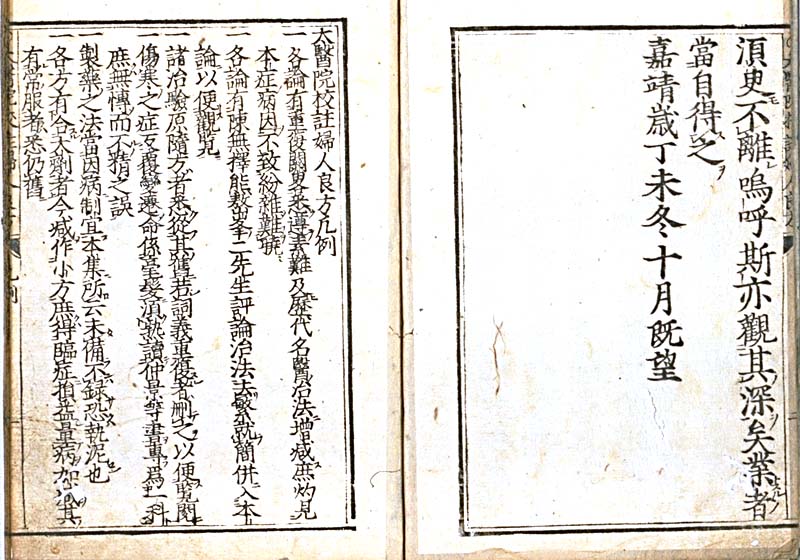 須臾不離嗚呼斯亦觀其深矣業者
當自得之
嘉靖歲丁未冬十月既望
太醫院校註婦人良方凡例
一各論有重復闕畧悉遵素難及歷代名醫治法增减庶灼見
本症病因不致紛雜難
一各論有陳無擇熊鰲峯二先生評論治法去繁就簡併入本
論以便觀覧
一諸治驗原隨方者悉從其舊若詞義重復者刪之以便覧閲
一傷寒之症反覆變遷命係毫髮須熟讀仲景等書專爲一科
庶無慱而不精之誤
一製藥之法當因病制宜本集所云未備不錄恐執泥也
一各方有合大劑者今减作小方庶得臨症損益量病加减其
有常服者悉仍舊
凡例